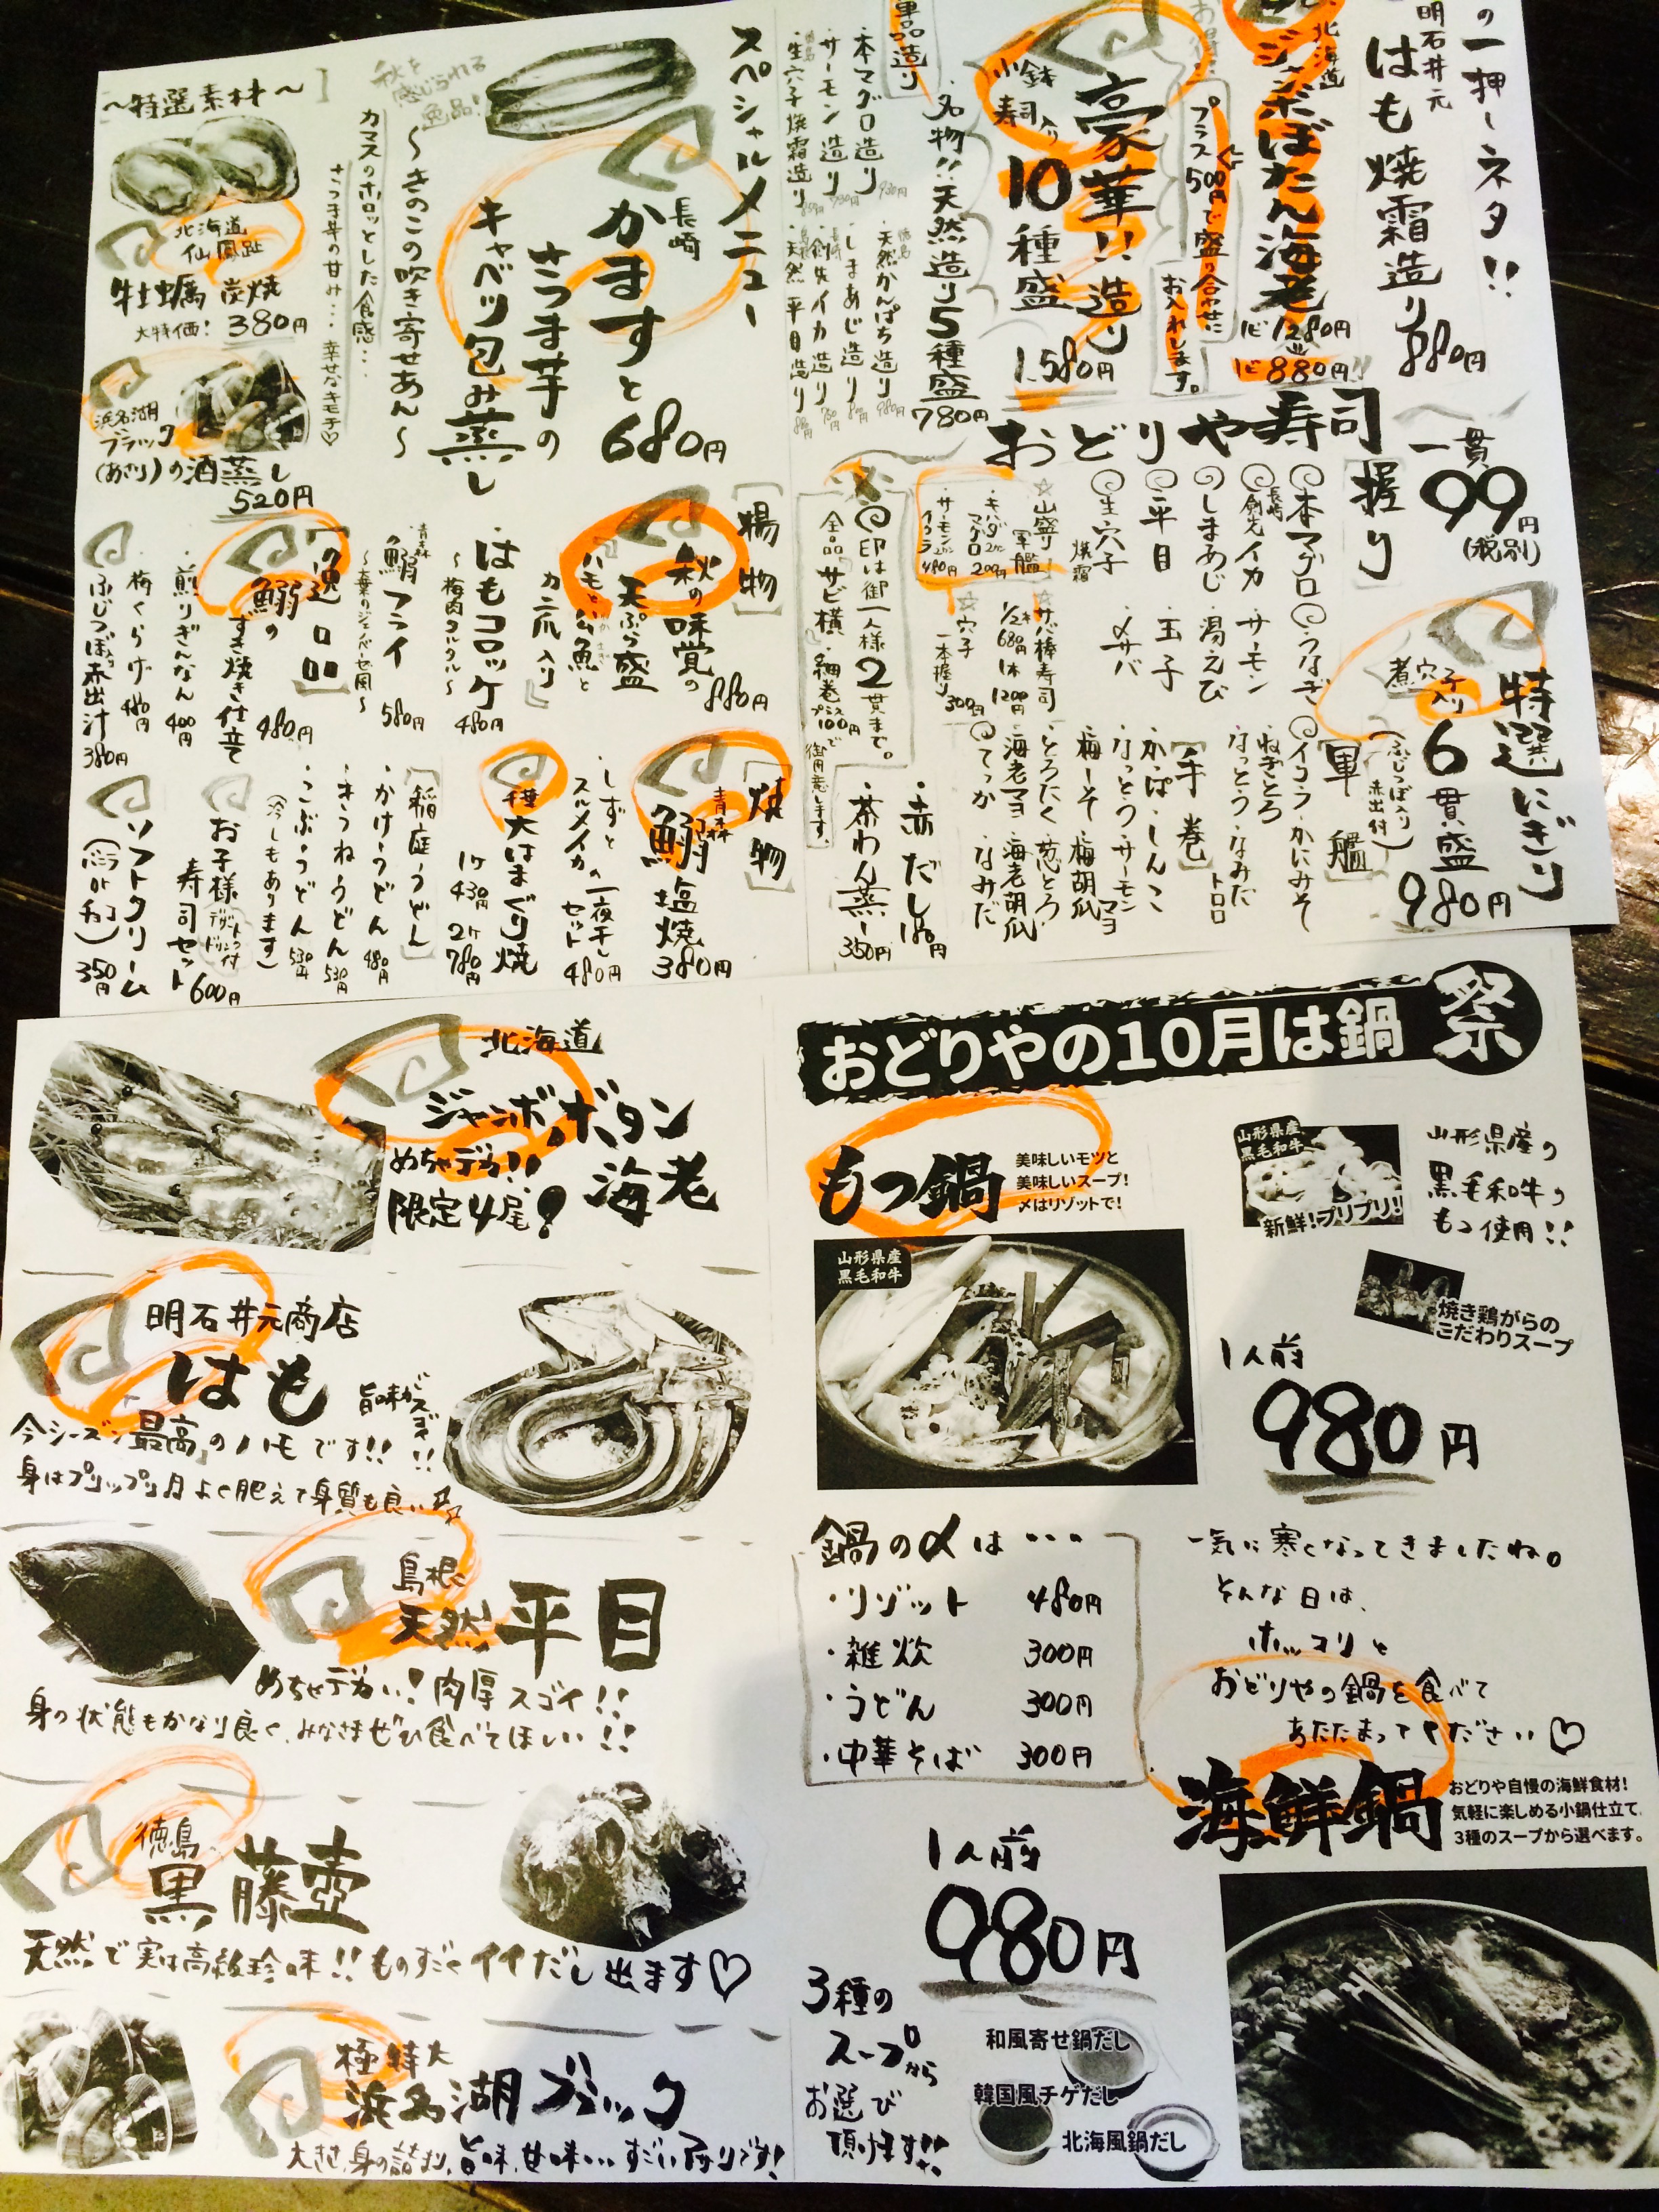 の一押しネタ!!
明石井元
はも焼霜造り 880円
北海道
ジャンボぼたん海老
1ピ 1280円
1ピ 880円!!
プラス500円で盛り合わせに
お入れします。
小鉢
寿司入り
豪華!!造り
10種盛
1,580円
名物!!天然造り5種盛
780円
単品造り
・本マグロ造り
・サーモン造り
・生穴子焼霜造り
・天然かんぱち造り
・しまあじ造り
・剣先イカ造り
・天然平目造り
おどりや寿司
[握り]
一貫
99円
(税別)
本マグロ
長崎
剣先イカ
しまあじ
平目
生穴子
焼霜
うなぎ
サーモン
湯えび
玉子
〆サバ
☆山盛り
軍艦
キハダマグロ
200円
サーモンイクラ
480円
サバ棒寿司
1/2本 680円
1本 1200円
☆穴子
一本握り
300円
印は御一人様2貫まで。
全品「サビ横」
・細巻プラス100円で
御用意します。
特選にぎり
煮穴子入り
6貫盛
980円
(ふじつぼ入り)
赤出付
[軍艦]
イクラ・かにみそ
ねぎとろ
なっとう・なみだ
トロロ
[手巻]
・かっぱ・しんこ
・なっとう・サーモンマヨ
・梅しそ・梅胡瓜
・とろたく・葱とろ
・海老マヨ・海老胡瓜
てっか・なみだ
・赤だし 180円
・茶わん蒸し 350円
スペシャルメニュー
長崎
かますと
さつま芋の
キャベツ包み蒸し
680円
〜きのこの吹き寄せあん〜
秋を
感じられる
逸品!
カマスのホロッとした食感…
さつま芋の甘み…幸せなキモチ♡
〜特選素材〜
北海道
仙鳳趾
牡蠣炭焼
大特価! 380円
浜名湖
ブラック
(あさり)の酒蒸し
520円
[揚物]
秋の味覚の
天ぷら盛
880円
ハモと公魚と
カニ爪入り
はもコロッケ
480円
〜梅肉タルタル〜
青森
鰯フライ
580円
[逸品]
鰯の
すき焼き仕立て
480円
・煎りぎんなん 400円
・梅くらげ 480円
・ふじつぼ赤出汁 380円
[焼物]
青森
鰯塩焼
380円
・しずと
スルメイカの一夜干し
セット 480円
千葉
大はまぐり焼
1ケ 430円
2ケ 780円
[稲庭うどん]
・かけうどん 480円
・きつねうどん 530円
・こぶうどん 530円
(冷しもあります)
お子様
寿司セット
600円
ソフトクリーム
(バニラorチョコ) 350円
北海道
ジャンボボタン
海老
めちゃデカ!!
限定4尾!
明石井元商店
はも
旨味がスゴイ!!
今シーズン「最高」のハモです!!
身はプリップリ且よく肥えて身質も良い
島根
天然平目
めちゃデカい!肉厚スゴイ!!
身の状態もかなり良く、みなさまぜひ食べてほしい!!
徳島
黒藤壺
天然で実は高級珍味!!ものすごくイイだし出ます♡
極特大
浜名湖ブラック
大きさ、身の詰まり、旨味、甘味…すごいアサリです!
おどりやの10月は鍋祭
もつ鍋
美味しいモツと
美味しいスープ!
〆はリゾットで!
山形県産
黒毛和牛
新鮮!プリプリ!
山形県産の
黒毛和牛の
もつ使用!!
山形県産
黒毛和牛
焼き鶏がらの
こだわりスープ
1人前
980円
鍋の〆は…
・リゾット 480円
・雑炊 300円
・うどん 300円
・中華そば 300円
一気に寒くなってきましたね。
そんな日は、
ホッコリと
おどりやの鍋を食べて
あたたまってください♡
海鮮鍋
おどりや自慢の海鮮食材!
気軽に楽しめる小鍋仕立て、
3種のスープから選べます。
1人前
980円
3種の
スープから
お選び
頂けます!!
和風寄せ鍋だし
韓国風チゲだし
北海風鍋だし